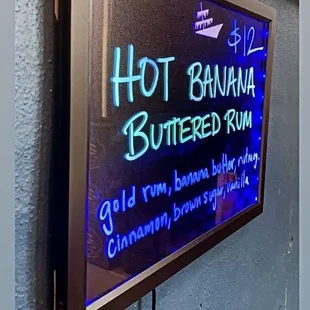 $12
HOT BANANA
BUTTERED RUM
gold rum, banana butter, nutmeg,
cinnamon, brown sugar, vanilla